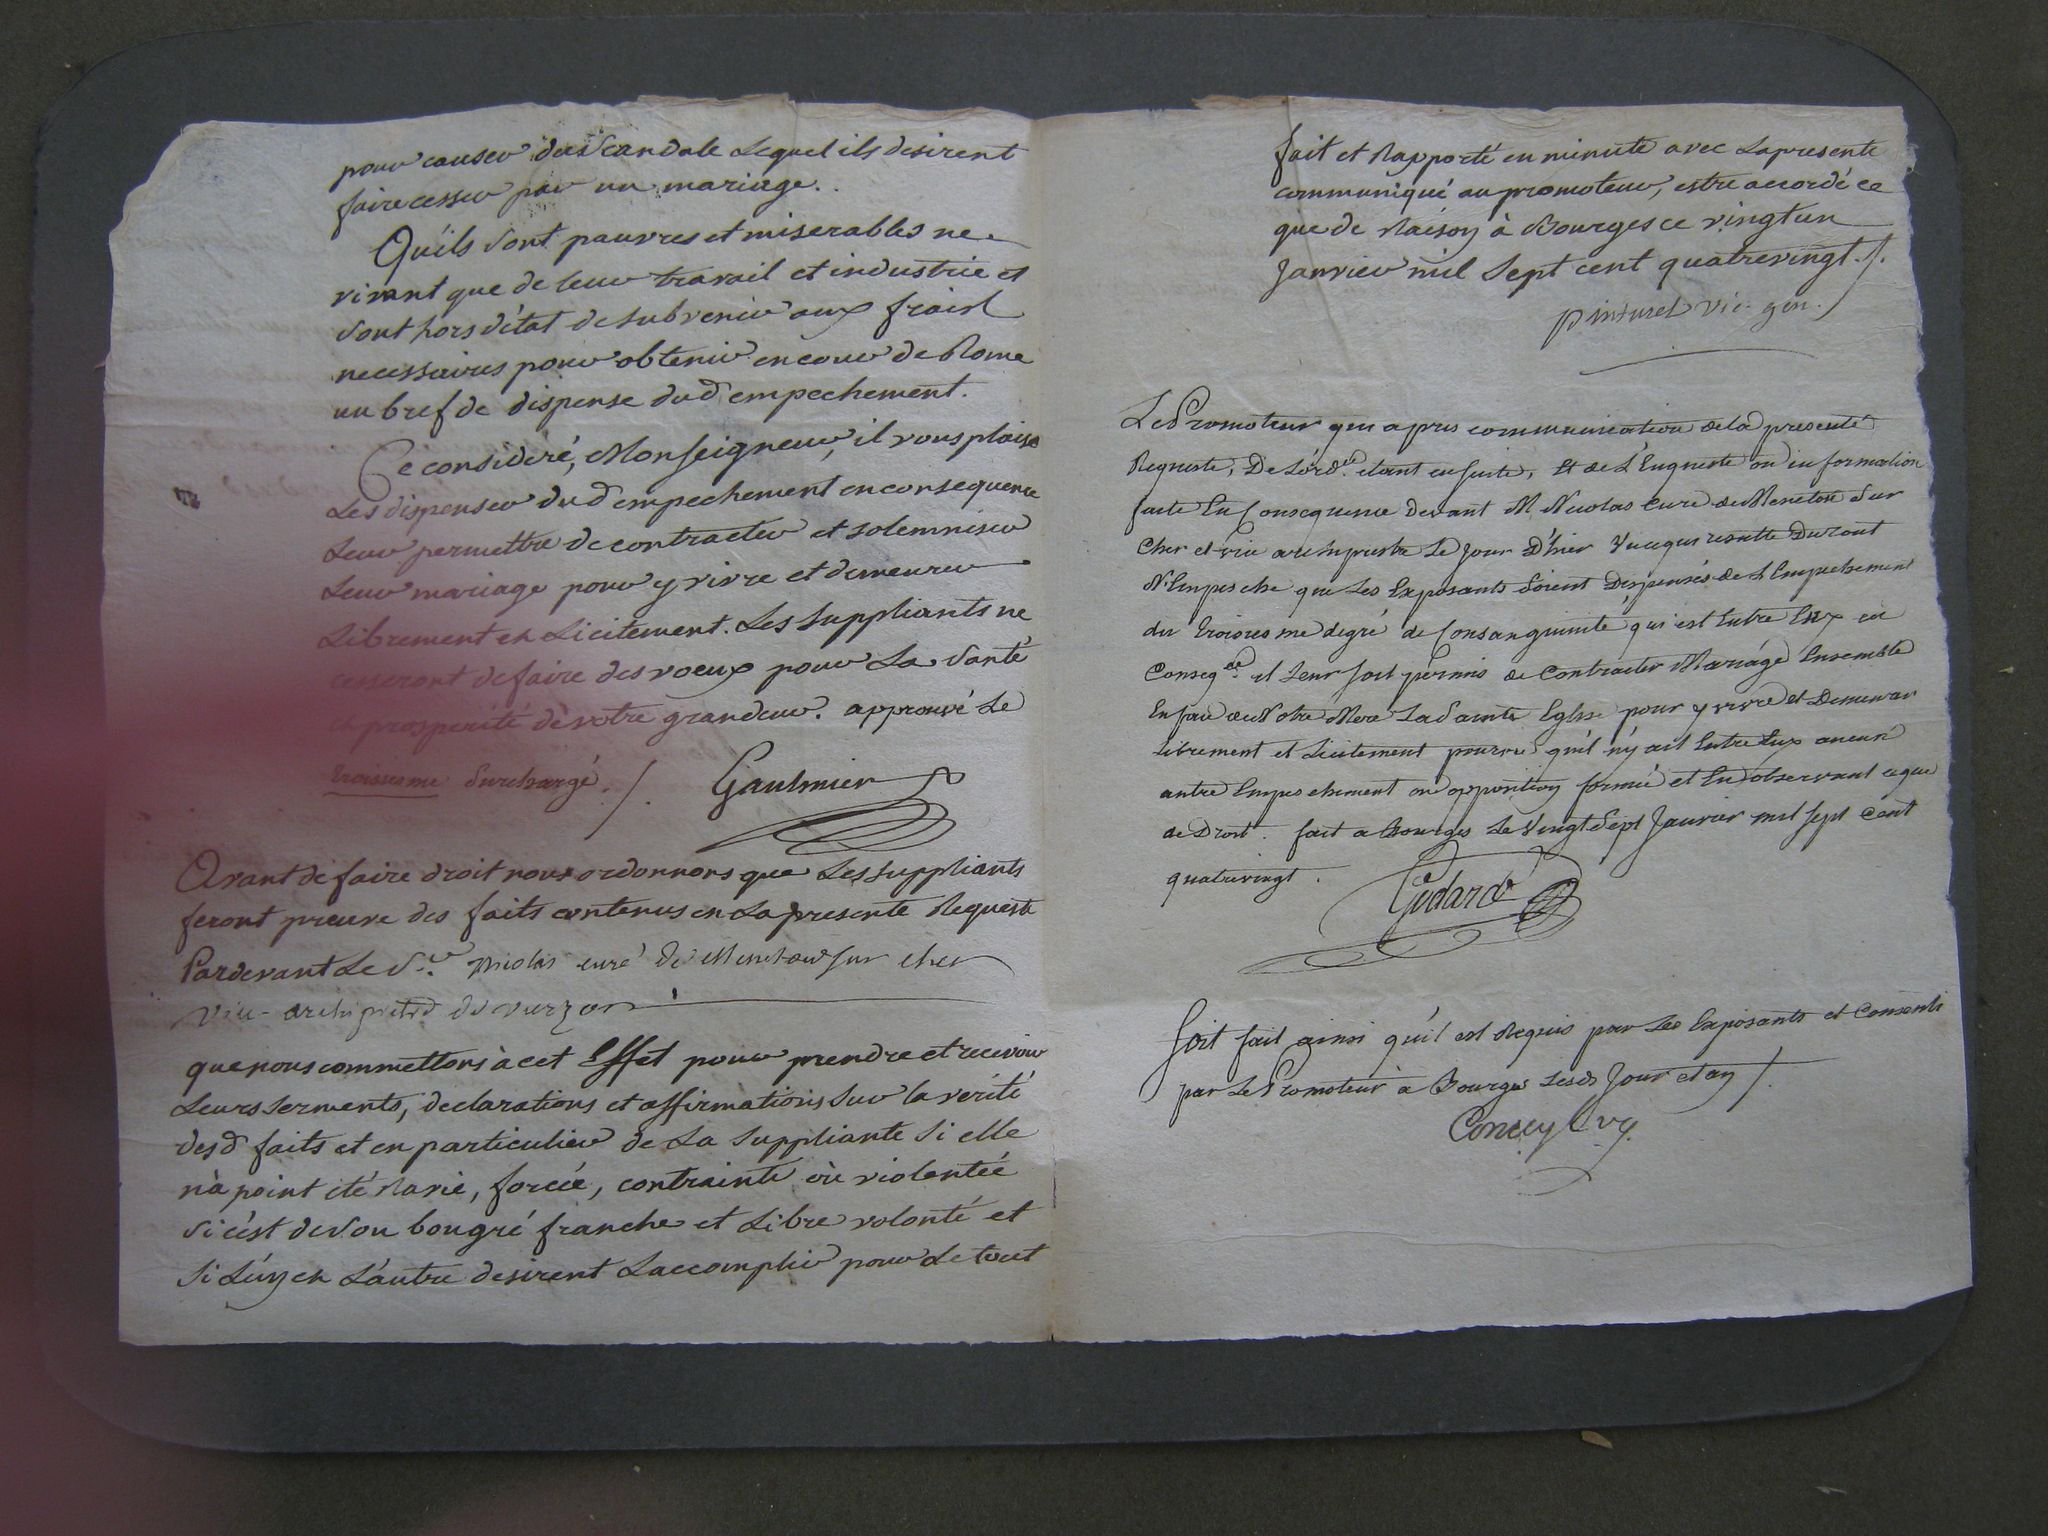 pour causer du Scandale Lequel ils desirent
faire cesser par un mariage.
Qu'ils sont pauvres et miserables ne
vivant que de leur travail et industrie et
sont hors d'état de subvenir aux frais
necessaires pour obtenir en cour de Rome
un bref de dispense dud empechement.
Ce consideré, Monseigneur, il vous plaise
Les dispenser dud empechement en consequence
Leur permettre de contracter et solemniser
Leur mariage pour y vivre et demeurer
Librement et Licitement. Les Suppliants ne
cesseront de faire des voeux pour La Santé
et prosperité de votre grandeur. approuvé Le
troisiesme Surchargé ./.
Gaulmier
Avant de faire droit nous ordonnons que Les Suppliants
feront preuve des faits contenus en La presente Requeste
Pardevant Le Sr. Nicolas curé de Menetou sur cher
Vice-archiprêtre de vierzon
que nous commettons à cet Effet pour prendre et recevoir
Leurs serments, declarations et affirmations sur la verité
desd faits et en particulier de La Suppliante Si elle
n'a point été Ravie, forcée, contrainte où violentée
Si c'est de son bongré franche et Libre volonté et
Si L'un et L'autre desirent L'accomplir pour Le tout
fait et Rapporté en minute avec La presente
communiqué au promoteur, estre accordé ce
que de Raison à Bourges ce vingt un
Janvier mil Sept cent quatrevingt ./.
Pinturel vic. gen.
Le Promoteur qui a pris communication de la presente
Requeste, De L'ordce. etant ensuite, Et de L'Enqueste ou information
faite En Consequence devant M Nicolas Curé de Menetou Sur
Cher et vice archiprestre Le Jour D'hier Vu ce qui resulte Du tout
N'Empesche que Les Exposants Soient Dispensés de L'Empechement
du troisiesme degré de Consanguinité qui est Entre Eux en
Conseqce. et Leur soit permis de Contracter Mariage Ensemble
En face de Notre Mere La Sainte Eglise pour y vivre et Demeurer
Librement et Licitement pourvu qu'il n'y ait Entre Eux aucun
autre Empeschement ou opposition formée et En observant ce que
de Droit. fait a Bourges Le Vingt Sept Janvier mil sept Cent
quatrevingt.
Godard
Soit fait ainsi qu'il est Requis par Les Exposants et Consenti
par Le Promoteur à Bourges Lesd Jour et an ./.
vg.